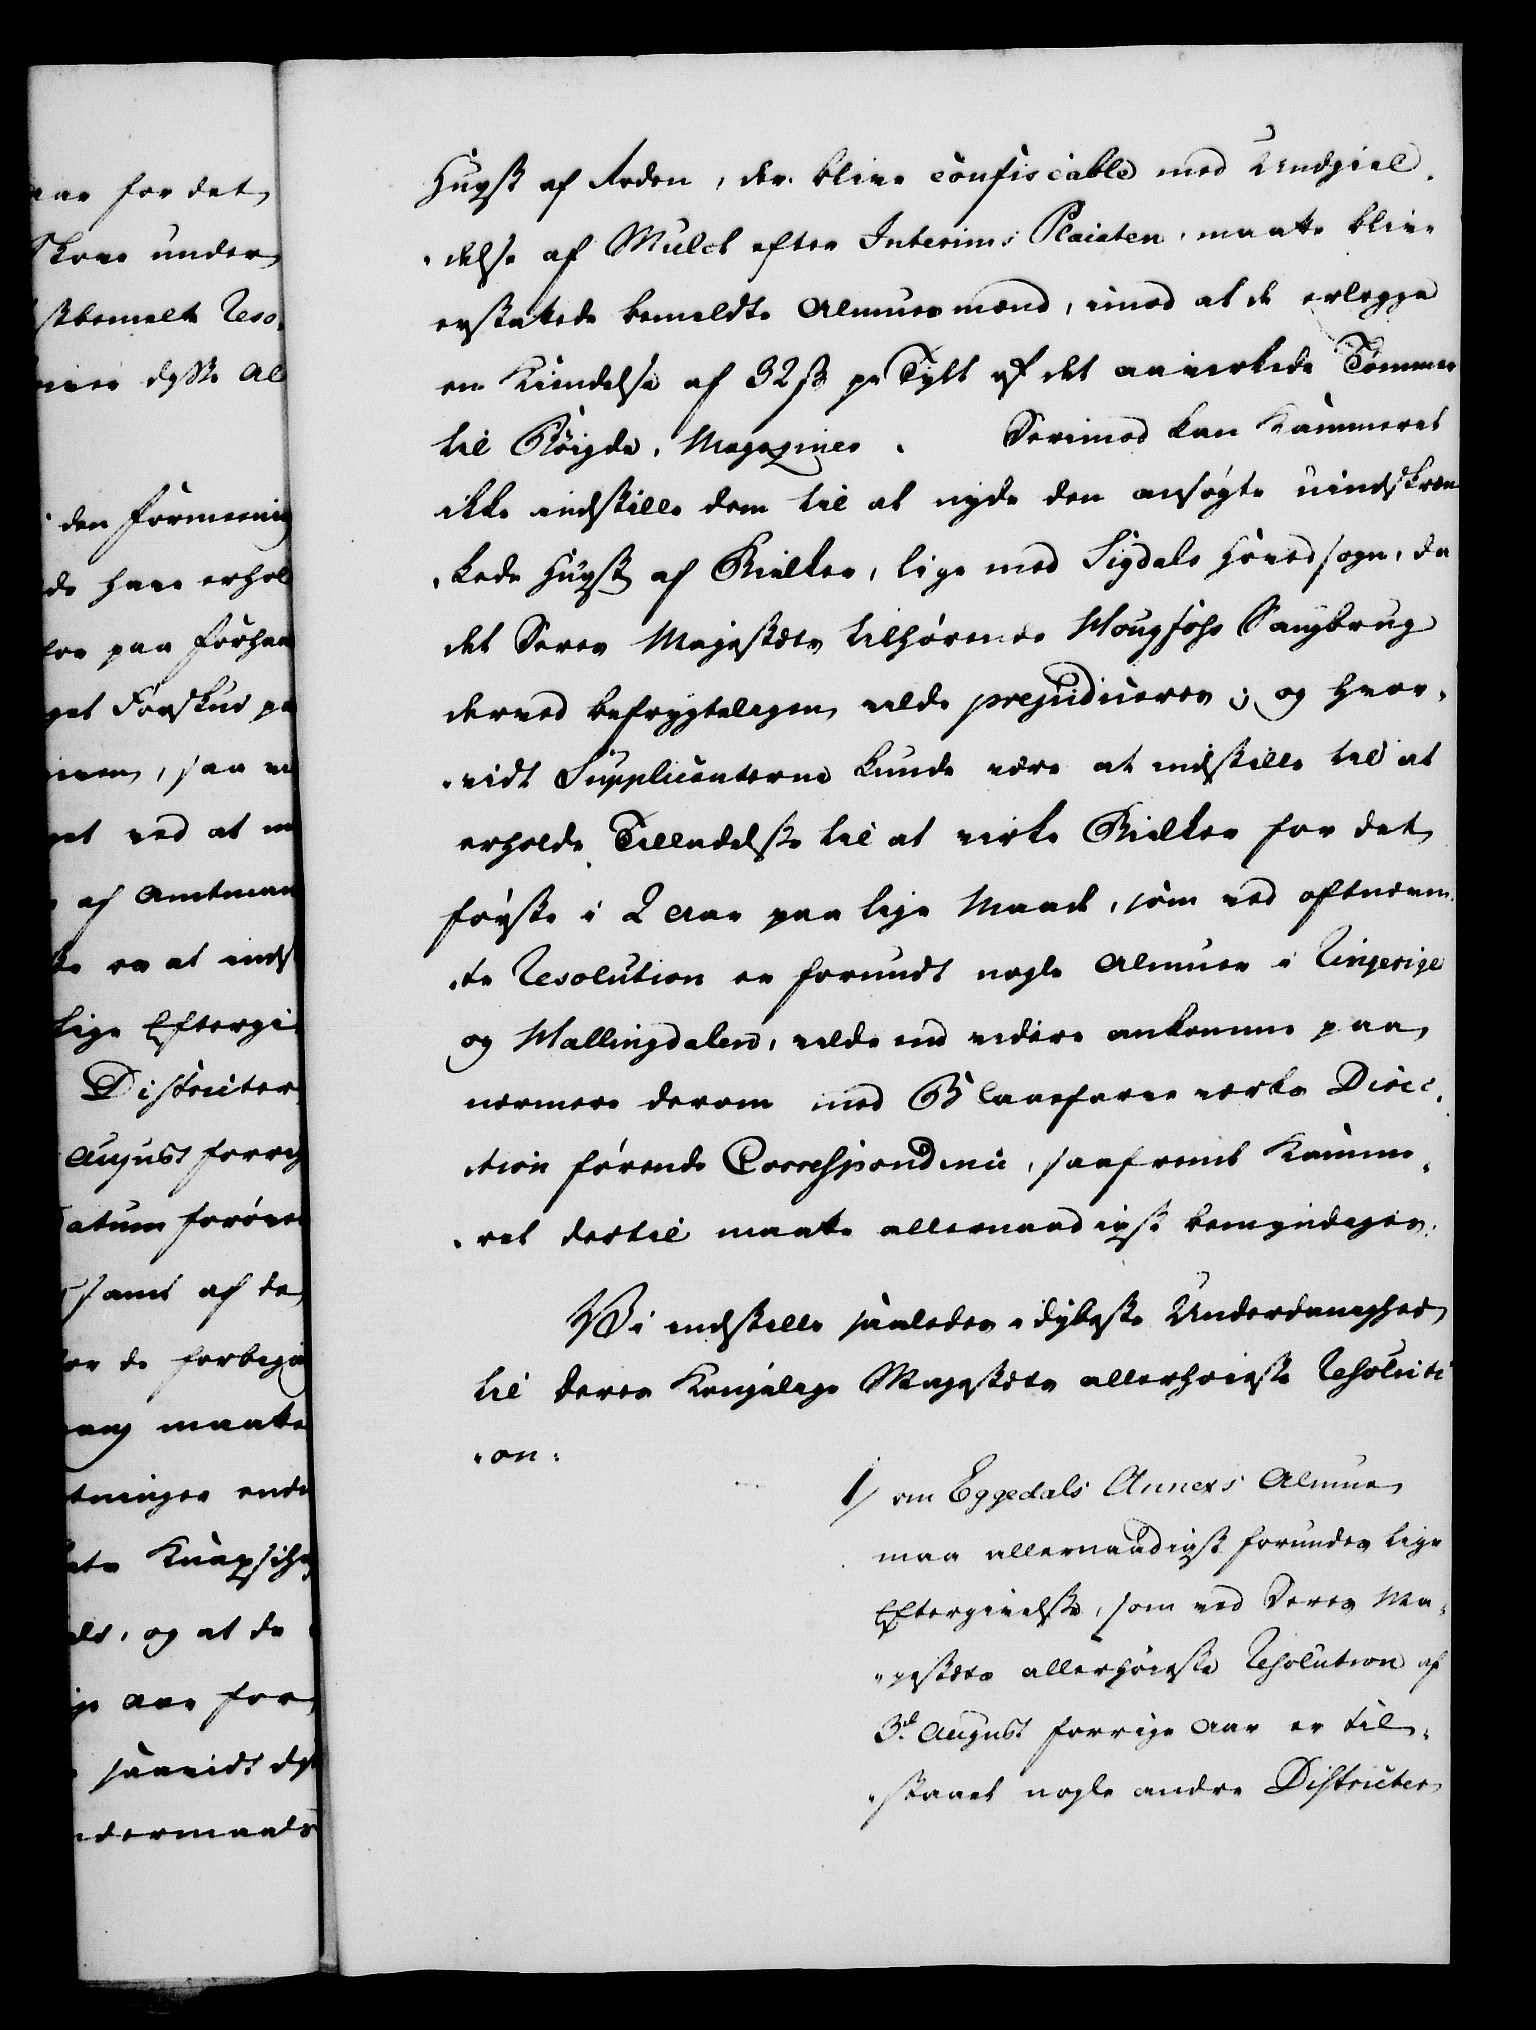 aar for det
Skove under
stbemelte Reso-
den Formening
de have erhol
for paa Forhaa
get Forskud pa
saa ve
get ved at
af Amtman
er at inds
lige Eftergi-
Districter
August forrig
Datum forøvet
samt af de
for de forbegaa
maatte
og at de
Aar for
saavidt
ndermaals
Hugst af Roden, der blive confiscable med Undgiel-
-delse af Mulct efter Interims Placaten, maatte blive
erstattede bemeldte Almuesmænd, imod at de erlegge
en Kiendelse af 32 ß pr Tylt af det aavirkede Tømmer
til Bøigde-Magaziner. Derimod kan Kammeret
ikke indstille dem til at nyde den ansøgte uindskræn
-kede Hugst af Bielker, lige med Sigdals Hovedsogn, da
det Deres Majestæts tilhørende Hougfoss Saugbrug
derved befrygteligen vilde prejudiceres; og hvor-
-vidt Supplicanterne kunde være at indstille til at
erholde Tilladelse til at virke Bielker for det
første i 2 Aar paa lige Maade, som ved oftnævn-
-te Resolution er forundt nogle Almuer i Ringerige
og Hallingdalen, vilde end videre ankomme paa
nærmere derom med Blaafarveværkets Direc-
-tion førende Correspondence, saafremt Kamme-
-ret dertil maatte allernaadigst bemyndiges.
Vi indstille saaledes i dybeste Underdanighed
til Deres Kongelige Majestæts allerhøieste Resoluti
-on:
1/ om Eggedals Annexs Almue
maa allernaadigst forundes lige
Eftergivelse, som ved Deres Ma-
-jestæts allerhøieste Resolution af
3d August forrige Aar er til-
-staaet nogle andre Districter